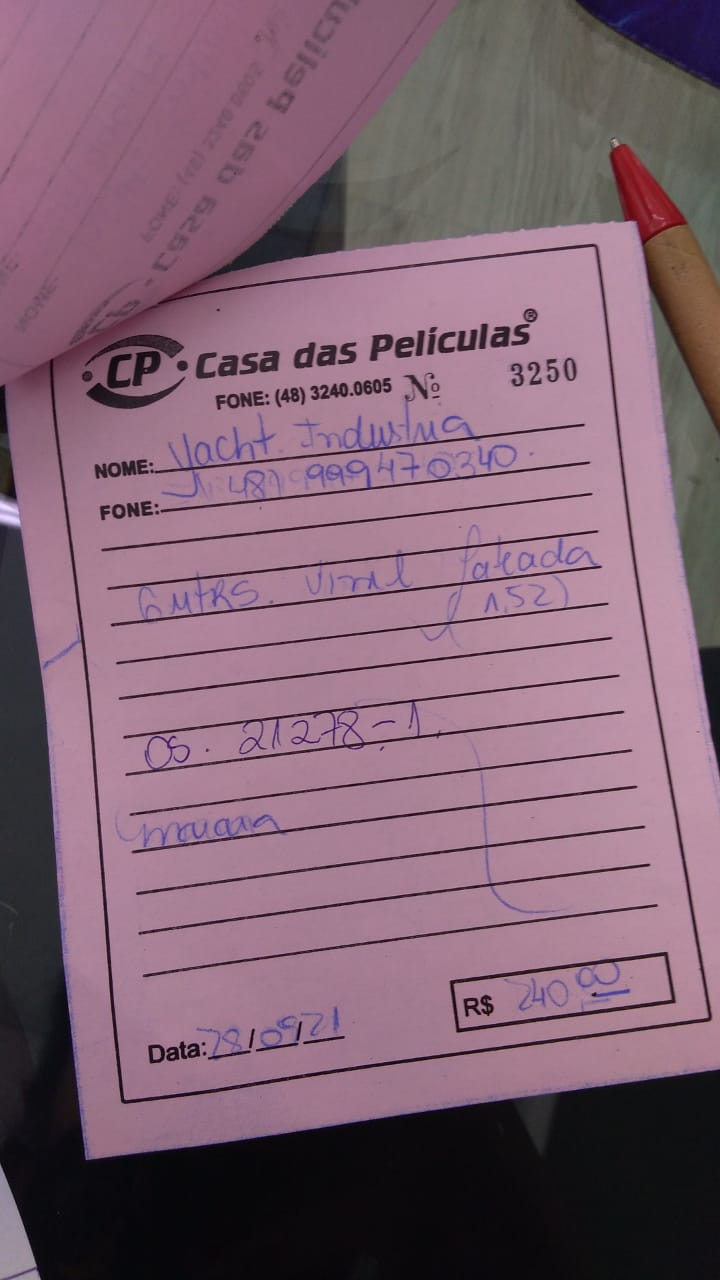 CP • Casa das Películas®
FONE: (48) 3240.0605 Nº 3250
NOME: Yacht. Industria
FONE: 48) 999470340
6 mtrs. vinil fateada
(1,52)
OS. 21278-1
Data: 28/09/21
R$ 240,00